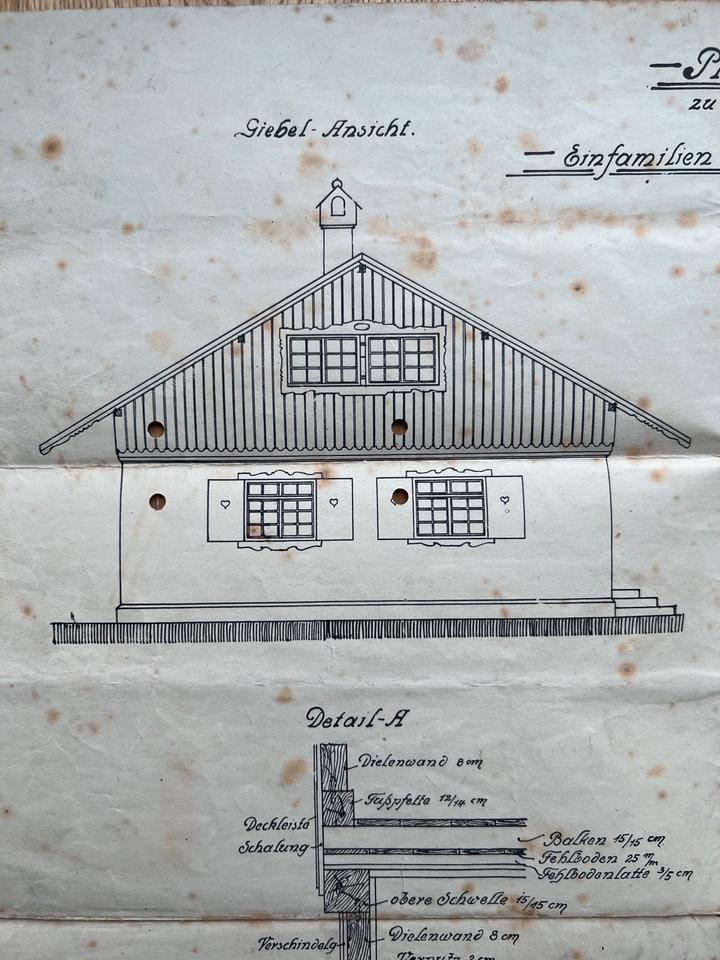 Giebel-Ansicht.
zu
Einfamilien
Detail-A
Dielenwand 8 cm
Fußpfette 12/14 cm
Deckleiste
Schalung
Balken 15/15 cm
Fehlboden 25 m/m
Fehlbodenlatte 3/5 cm
obere Schwelle 15/15 cm
Verschindelg
Dielenwand 8 cm
Verputz 2 cm